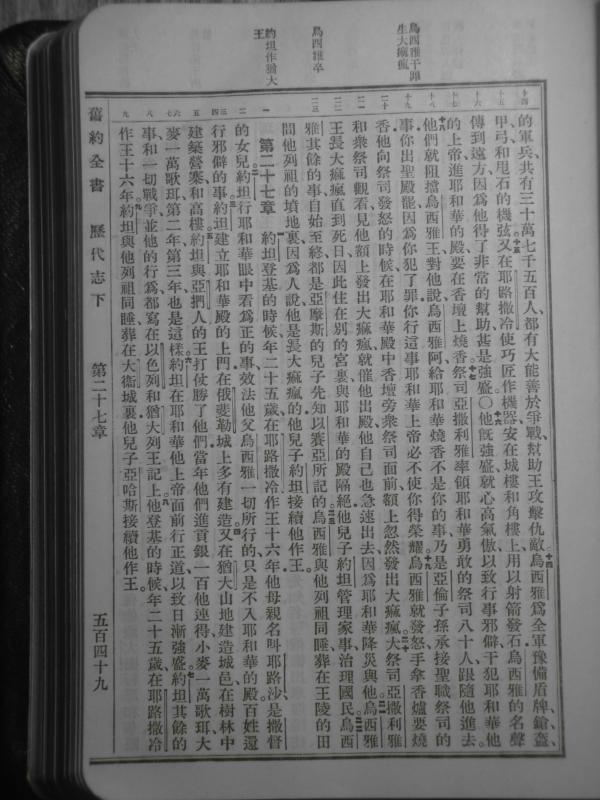 烏西雅干罪
生大痲瘋
烏西雅卒
約坦作猶大
王
的軍兵、共有三十萬七千五百人、都有大能善於爭戰、幫助王攻擊仇敵。烏西雅爲全軍豫備盾牌、鎗、盔、
甲、弓、和甩石的機弦、又在耶路撒冷使巧匠作機器安在城樓和角樓上、用以射箭發石、烏西雅的名聲
傳到遠方、因爲他得了非常的幫助甚是強盛。〇他既強盛就心高氣傲、以致行事邪僻、干犯耶和華他
的上帝、進耶和華的殿、要在香壇上燒香。祭司亞撒利雅率領耶和華勇敢的祭司八十人、跟隨他進去。
他們就阻擋烏西雅王、對他說、烏西雅阿、給耶和華燒香不是你的事、乃是亞倫子孫承接聖職祭司的
事、你出聖殿罷、因爲你犯了罪、你行這事、耶和華上帝必不使你得榮耀。烏西雅就發怒、手拿香爐要燒
香、他向祭司發怒的時候、在耶和華殿中香壇旁衆祭司面前、額上忽然發出大痲瘋。大祭司亞撒利雅
和衆祭司觀看、見他額上發出大痲瘋、就催他出殿、他自己也急速出去、因爲耶和華降災與他。烏西雅
王長大痲瘋直到死日、因此住在別的宮裏、與耶和華的殿隔絕、他兒子約坦管理家事、治理國民。烏西
雅其餘的事、自始至終、都是亞摩斯的兒子先知以賽亞所記的。烏西雅與他列祖同睡、葬在王陵的田
間他列祖的墳地裏、因爲人說他是長大痲瘋的、他兒子約坦接續他作王。
第二十七章 約坦登基的時候、年二十五歲、在耶路撒冷作王十六年、他母親名叫耶路沙、是撒督
的女兒。約坦行耶和華眼中看爲正的事、效法他父烏西雅一切所行的、只是不入耶和華的殿、百姓還
行邪僻的事。約坦建立耶和華殿的上門、在俄斐勒城上多有建造。又在猶大山地建造城邑、在樹林中
建築營寨和高樓。約坦與亞捫人的王打仗勝了他們、當年他們進貢銀一百他連得、小麥一萬歌珥、大
麥一萬歌珥、第二年第三年也是這樣。約坦在耶和華他上帝面前行正道、以致日漸強盛。約坦其餘的
事、和一切戰爭、並他的行爲、都寫在以色列和猶大列王記上。他登基的時候、年二十五歲、在耶路撒冷
作王十六年。約坦與他列祖同睡、葬在大衞城裏、他兒子亞哈斯接續他作王。
舊約全書 歷代志下 第二十七章 五百四十九